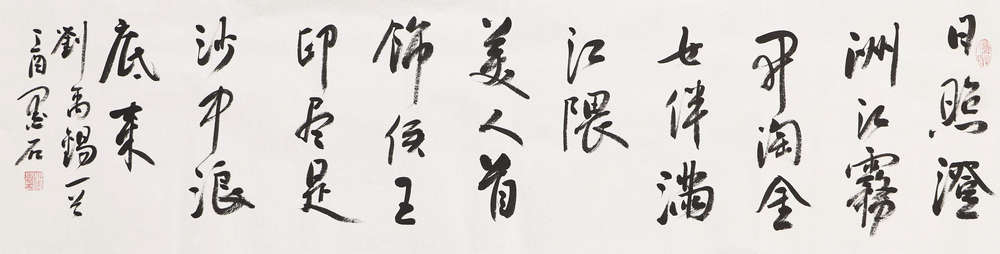 日照澄
洲江霧
开淘金
女伴满
江隈
美人首
飾侯王
印尽是
沙中浪
底来
劉禹錫一首
丁酉墨石